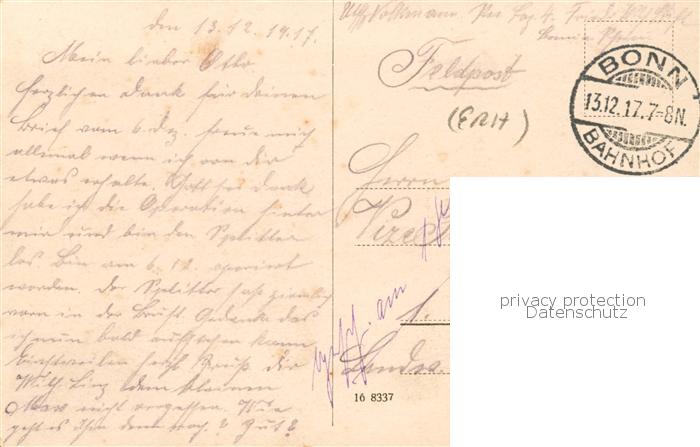 den 13.12.1917.
Mein lieber Otto
Herzlichen Dank für deinen
Brief vom 6 Dez. freue mich
allemal wenn ich von dir
etwas erhalte. Gott sei dank
habe ich die Operation hinter
mir und bin den Splitter
los. Bin am 6.12. operiert
worden. Der Splitter saß ziemlich
vorn in der Brust. Gedenke das
ich nun bald aufstehen kann
Einstweilen herzl Gruß dir
dem kleinen
Max nicht vergessen. Wie
geht es ihm denn noch? Gut?
Feldpost
(ERH)
BONN
13.12.17.7-8N.
BAHNHOF
Herrn
Vize
am
1.
Landw.
16 8337
privacy protection
Datenschutz